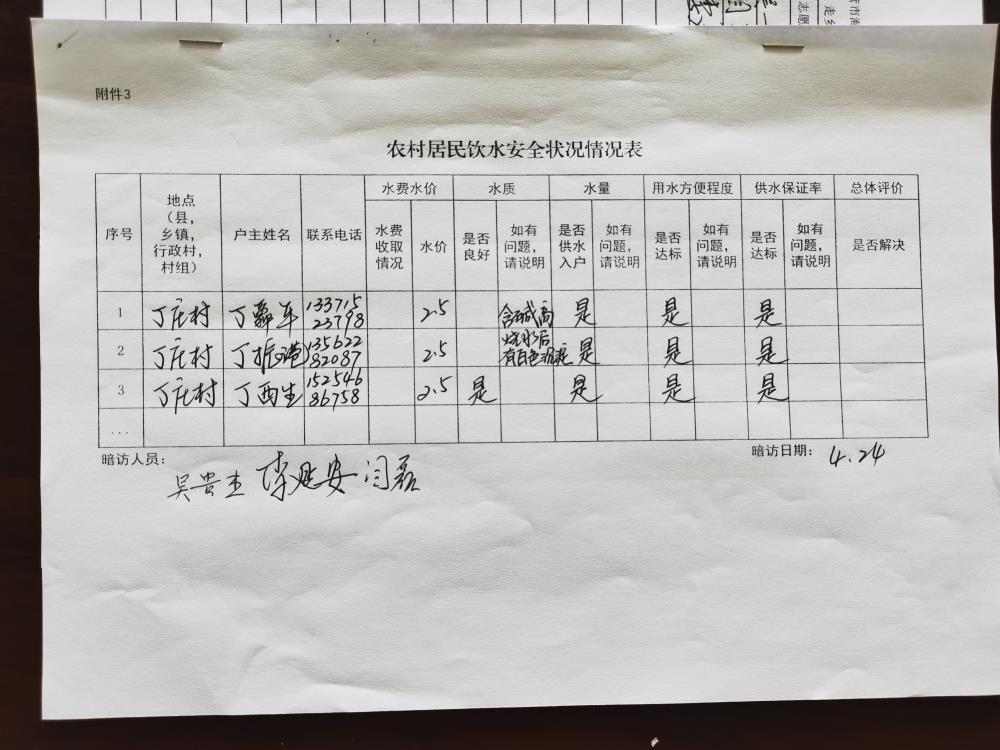 附件3
农村居民饮水安全状况情况表
序号 地点（县，乡镇，行政村，村组） 户主姓名 联系电话 水费水价 水质 水量 用水方便程度 供水保证率 总体评价
水费收取情况 水价 是否良好 如有问题，请说明 是否供水入户 如有问题，请说明 是否达标 如有问题，请说明 是否达标 如有问题，请说明 是否解决
1 丁庄村 丁 133715 23798 2.5 含碱高 是 是 是
2 丁庄村 丁振港 135622 82087 2.5 烧水后有白色沉淀 是 是 是
3 丁庄村 丁西生 152546 86758 2.5 是 是 是 是
...
暗访人员： 吴贵杰 李延安 闫磊
暗访日期： 4.24